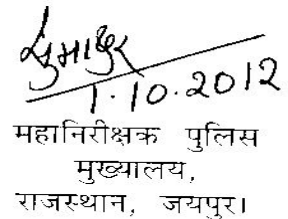 1.10.2012
महानिरीक्षक पुलिस
मुख्यालय,
राजस्थान, जयपुर।